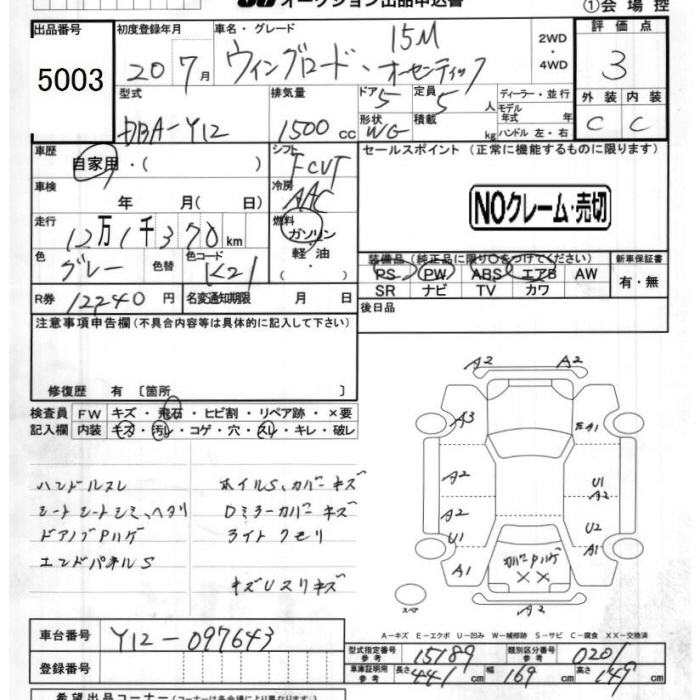 オークション出品申込書
①会場控
出品番号 5003
初度登録年月 20 7月
車名・グレード 15M
ウィングロード・オーセンティック
2WD・4WD
評価点 3
外装 C 内装 C
型式 DBA-Y12
排気量 1500 cc
ドア 5 形状 WG
定員 5 人 積載 kg
ディーラー・並行
モデル年式 年
ハンドル 左・右
車歴 自家用・( )
シフト FCVT
セールスポイント (正常に機能するものに限ります)
車検 年 月( 日)
冷房 AAC
NOクレーム・売切
走行 12万1千370 km
燃料 ガソリン・軽油・( )
色 グレー 色替 色コード K21
装備品(純正品に限り○をつけてください) 新車保証書
PS PW ABS エアB AW 有・無
SR ナビ TV カワ
R券 12240 円 名変通知期限 月 日
後日品
注意事項申告欄(不具合内容等は具体的に記入して下さい)
修復歴 有 〔箇所 〕
検査員 FW キズ・飛石・ヒビ割・リペア跡・×要
記入欄 内装 キズ・汚レ・コゲ・穴・スレ・キレ・破レ
ハンドルスレ
シートシートシミ、ヘタリ
ドアノブPハゲ
エンドパネルS
ホイルS、カバーキズ
Dミラーカバーキズ
ライトクモリ
キズUスリキズ
A2 A2
A3 EA1
A2 U1 A2
A2 U2
U1 A1
A1
カバーPハゲ
××
A1
A2
スペア
A-キズ E-エクボ U-凹み W-補修跡 S-サビ C-腐食 XX-交換済
車台番号 Y12-097643
型式指定番号 参考 15189 類別区分番号 参考 0201
登録番号
車庫証明用 参考 長さ 441 cm 幅 169 cm 高さ 149 cm
希望出品コーナー